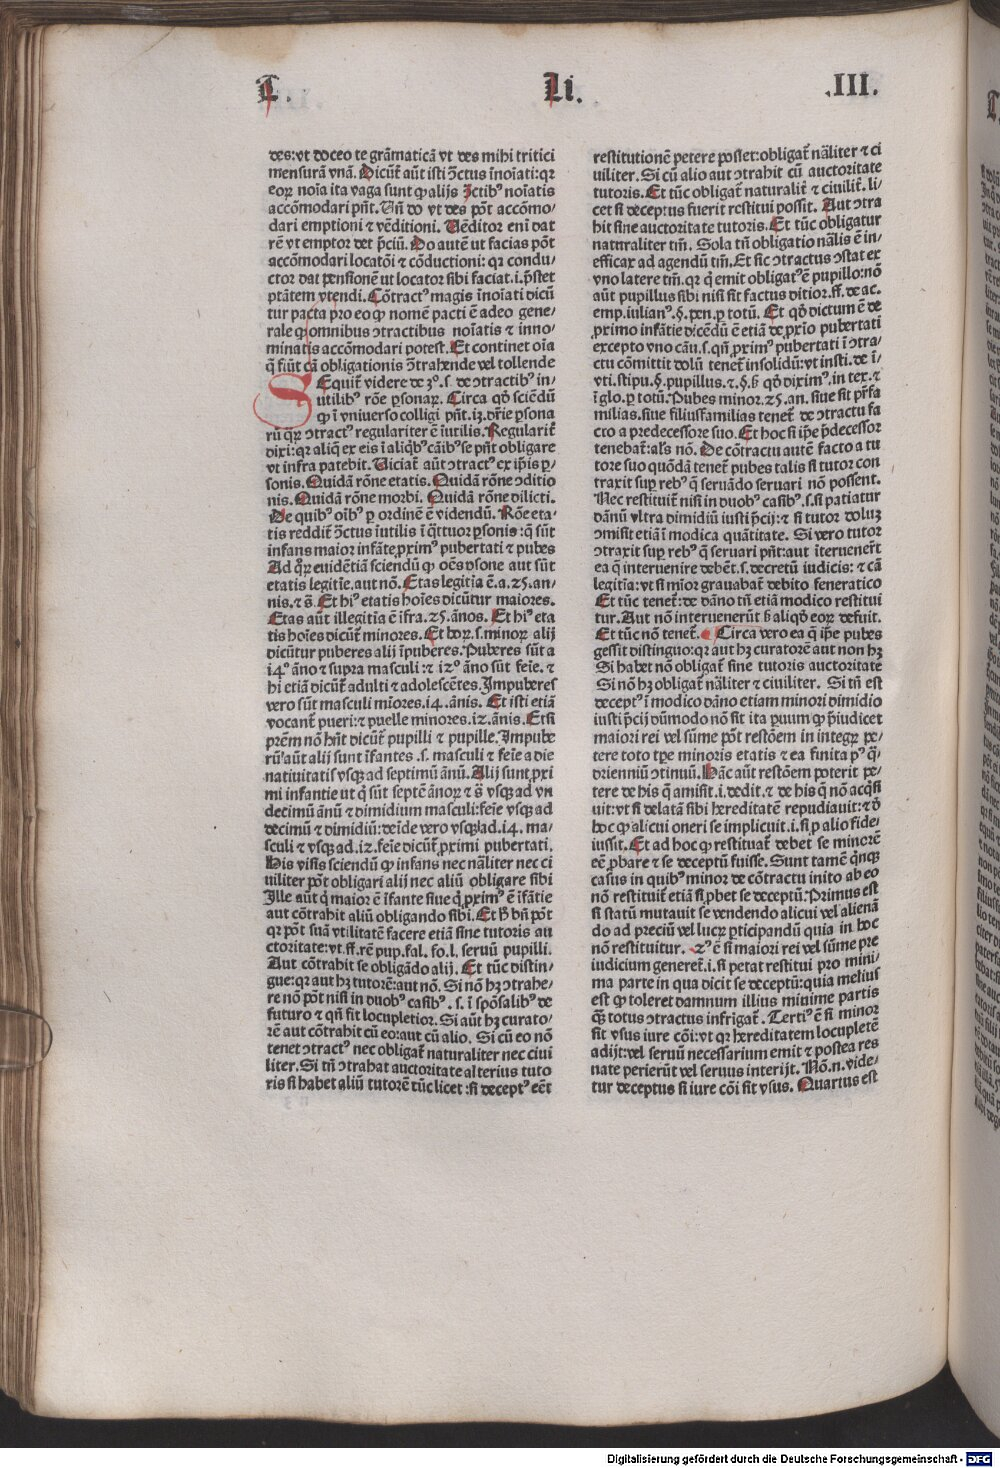 L. Li. III.
des:vt doceo te grāmaticā vt des mihi tritici
mensurā vnā. Dicūt̄ aūt isti ꝯctus īnoīati:qꝛ
eoꝝ noīa ita vaga sunt ꝙ alijs ꝯctibꝰ noīatis
accōmodari pn̄t. Vn̄ do vt des pōt accōmo⸗
dari emptioni ⁊ vēditioni. Vēditor enī dat
rē vt emptor det p̄ciū. Do autē ut facias pōt
accōmodari locatōi ⁊ cōductioni: qꝛ condu⸗
ctor dat pensionē ut locator sibi faciat.i.p̄stet
ptātem vtendi. Cōtractꝰ magis īnoīati dicū
tur pacta pro eo ꝙ nomē pacti ē adeo gene⸗
rale ꝙ omnibus ꝯtractibus noīatis ⁊ inno⸗
minatis accōmodari potest. Et continet oīa
q̄ fiūt cā obligationis ꝯtrahende vel tollende
SEquit̄ videre de 3º. s. de ꝯtractibꝰ in⸗
utilibꝰ rōe ꝑsonaꝝ. Circa qd̄ sciendū
ꝙ ī vniuerso colligi pn̄t.i3.dr̄ie ꝑsona
rū q̄ꝝ ꝯtractꝰ regulariter ē īutilis. Regularit̄
dixi:qꝛ aliq̄ ex eis ī aliq̄bꝰ cāibꝰ se pn̄t obligare
vt infra patebit. Viciat̄ aūt ꝯtractꝰ ex ip̄is ꝑ⸗
sonis. Quidā rōne etatis. Quidā rōne ꝯditio
nis. Quidā rōne morbi. Quidā rōne dilicti.
De quibꝰ oībꝰ ꝑ ordinē ē videndū. Rōe eta⸗
tis reddit̄ ꝯctus īutilis ī q̄ttuor ꝑsonis: q̄ sūt
infans maior infāte,ꝓximꝰ pubertati ⁊ pubes
Ad q̄ꝝ euidētiā sciendū ꝙ oēs ꝑsone aut sūt
etatis legitīe.aut nō. Etas legitīa ē.a.25.an⸗
nis.⁊ s̄. Et hiꝰ etatis hoīes dicūtur maiores.
Etas aūt illegitīa ē īfra.25.ānos. Et hiꝰ eta
tis hoīes dicūt̄ minores. Et hoꝝ.s.minoꝝ alij
dicūtur puberes alij īpuberes. Puberes sūt a
i4º āno ⁊ supra masculi:⁊ i2º āno sūt feīe. ⁊
hi etiā dicūt̄ adulti ⁊ adolescētes. Impuberes
vero sūt masculi mīores.i4. ānis. Et isti etiā
vocant̄ pueri:⁊ puelle minores.i2.ānis. Etsi
prēm nō hn̄t dicūt̄ pupilli ⁊ pupille. Impube
rū aūt alij sunt īfantes .s. masculi ⁊ feīe a die
natiuitatis vsqꝫ ad septimū ānū. Alij sunt ꝓxi
mi infantie ut q̄ sūt septē ānoꝝ ⁊ s̄ vsqꝫ ad vn
decimū ānū ⁊ dimidium masculi:feīe vsqꝫ ad
decimū ⁊ dimidiū:deīde vero vsqꝫ ad.i4. ma⸗
sculi ⁊ vsqꝫ ad.i2.feīe dicūt̄ ꝓximi pubertati.
His visis sciendū ꝙ infans nec nāliter nec ci
uiliter pōt obligari alij nec aliū obligare sibi
Ille aūt q̄ maior ē īfante siue q̄ ꝓximꝰ ē īfātie
aut cōtrahit aliū obligando sibi. Et h̄ bn̄ pōt
qꝛ pōt suā vtilitatē facere etiā sine tutoris au
ctoritate:vt.ff.rē pup.sal. fo.l. seruū pupilli.
Aut cōtrahit se obligādo alij. Et tūc distin⸗
gue:qꝛ aut hꝫ tutorē:aut nō. Si nō hꝫ ꝯtrahe⸗
re nō pōt nisi in duobꝰ casibꝰ .s. ī spōsalibꝰ de
futuro ⁊ qn̄ fit locupletior. Si aūt hꝫ curato⸗
rē aut cōtrahit cū eo:aut cū alio. Si cū eo nō
tenet ꝯtractꝰ nec obligat̄ naturaliter nec ciui
liter. Si tn̄ ꝯtrahat auctoritate alterius tuto
ris si habet aliū tutorē tūc licet :si deceptꝰ eēt
restitutionē petere posset:obligat̄ nāliter ⁊ ci
uiliter. Si cū alio aut ꝯtrahit cū auctoritate
tutoris. Et tūc obligat̄ naturalit̄ ⁊ ciuilit̄. li⸗
cet si deceptus fuerit restitui possit. Aut ꝯtra
hit sine auctoritate tutoris. Et tūc obligatur
naturaliter tm̄. Sola tn̄ obligatio nālis ē in⸗
efficax ad agendū tm̄. Et sic ꝯtractus ꝯstat ex
vno latere tm̄. qꝛ q̄ emit obligatꝰ ē pupillo:nō
aūt pupillus sibi nisi sit factus ditior.ff.de ac.
emp.iulianꝰ.§.pen.ꝑ totū. Et qd̄ dictum ē de
ꝓximo infātie dicēdū ē etiā de ꝓxīo pubertati
excepto vno cāu.s.qn̄ ꝓximꝰ pubertati ī ꝯtra⸗
ctu cōmittit dolū tenet̄ insolidū:vt insti. de ī⸗
vti.stipu.§.pupillus.⁊.§.h̄ qd̄ diximꝰ.in tex.⁊
ī glo.ꝑ totū. Pubes minor.25.an.siue sit pr̄fa
milias.siue filiusfamilias tenet̄ de ꝯtractu fa
cto a predecessore suo. Et hoc si ip̄e p̄decessor
tenebat̄:als̄ nō. De cōtractu autē facto a tu
tore suo quōdā tenet̄ pubes talis si tutor con
traxit suꝑ rebꝰ q̄ seruādo seruari nō possent.
Nec restituit̄ nisi in duobꝰ casibꝰ.s.si patiatur
dānū vltra dimidiū iusti p̄cij:⁊ si tutor doluꝫ
ꝯmisit etiā ī modica quātitate. Si vero tutor
ꝯtraxit suꝑ rebꝰ q̄ seruari pn̄t:aut īteruenerūt
ea q̄ interuenire debēt.s.decretū iudicis: ⁊ cā
legitīa:vt si mīor grauabat̄ debito feneratico
Et tūc tenet̄:de dāno tn̄ etiā modico restitui
tur. Aut nō interuenerūt h̄ aliqd̄ eoꝝ defuit.
Et tūc nō tenet̄. Circa vero ea q̄ ip̄e pubes
gessit distinguo:qꝛ aut hꝫ curatorē aut non hꝫ
Si habet nō obligat̄ sine tutoris auctoritate
Si nō hꝫ obligat̄ nāliter ⁊ ciuiliter. Si tn̄ est
deceptꝰ ī modico dāno etiam minori dimidio
iusti p̄cij dūmodo nō sit ita ꝑuum ꝙ p̄iudicet
maiori rei vel sūme pōt restōem in integꝝ pe⸗
tere toto tp̄e minoris etatis ⁊ ea finita pꝰ q̄⸗
drienniū ꝯtinuū. Hāc aūt restōem poterit pe⸗
tere de his q̄ amisit.i.dedit.⁊ de his q̄ nō acq̄si
uit:vt si delatā sibi hereditatē repudiauit:⁊ d̄
hoc ꝙ alicui oneri se implicuit.i.si ꝑ alio fide⸗
iussit. Et ad hoc ꝙ restituat̄ debet se minorē
eē ꝓbare ⁊ se deceptū fuisse. Sunt tamē q̄nqꝫ
casus in quibꝰ minor de cōtractu inito ab eo
nō restituit̄ etiā si ꝓbet se deceptū. Primus est
si statū mutauit se vendendo alicui vel alienā
do ad preciū vel lucꝝ ꝑticipandū quia in hoc
nō restituitur. 2ꝰ ē si maiori rei vel sūme pre
iudicium generet̄.i.si petat restitui pro mini⸗
ma parte in qua dicit se deceptū:quia melius
est ꝙ toleret damnum illius minime partis
q̄ꝫ totus ꝯtractus infrigat̄. Tertiꝰ ē si minor
sit vsus iure cōi:vt qꝛ hereditatem locupletē
adijt:vel seruū necessarium emit ⁊ postea res
nate perierūt vel seruus interijt. Nō.n.vide⸗
tur deceptus si iure cōi sit vsus. Quartus est
Digitalisierung gefördert durch die Deutsche Forschungsgemeinschaft - DFG